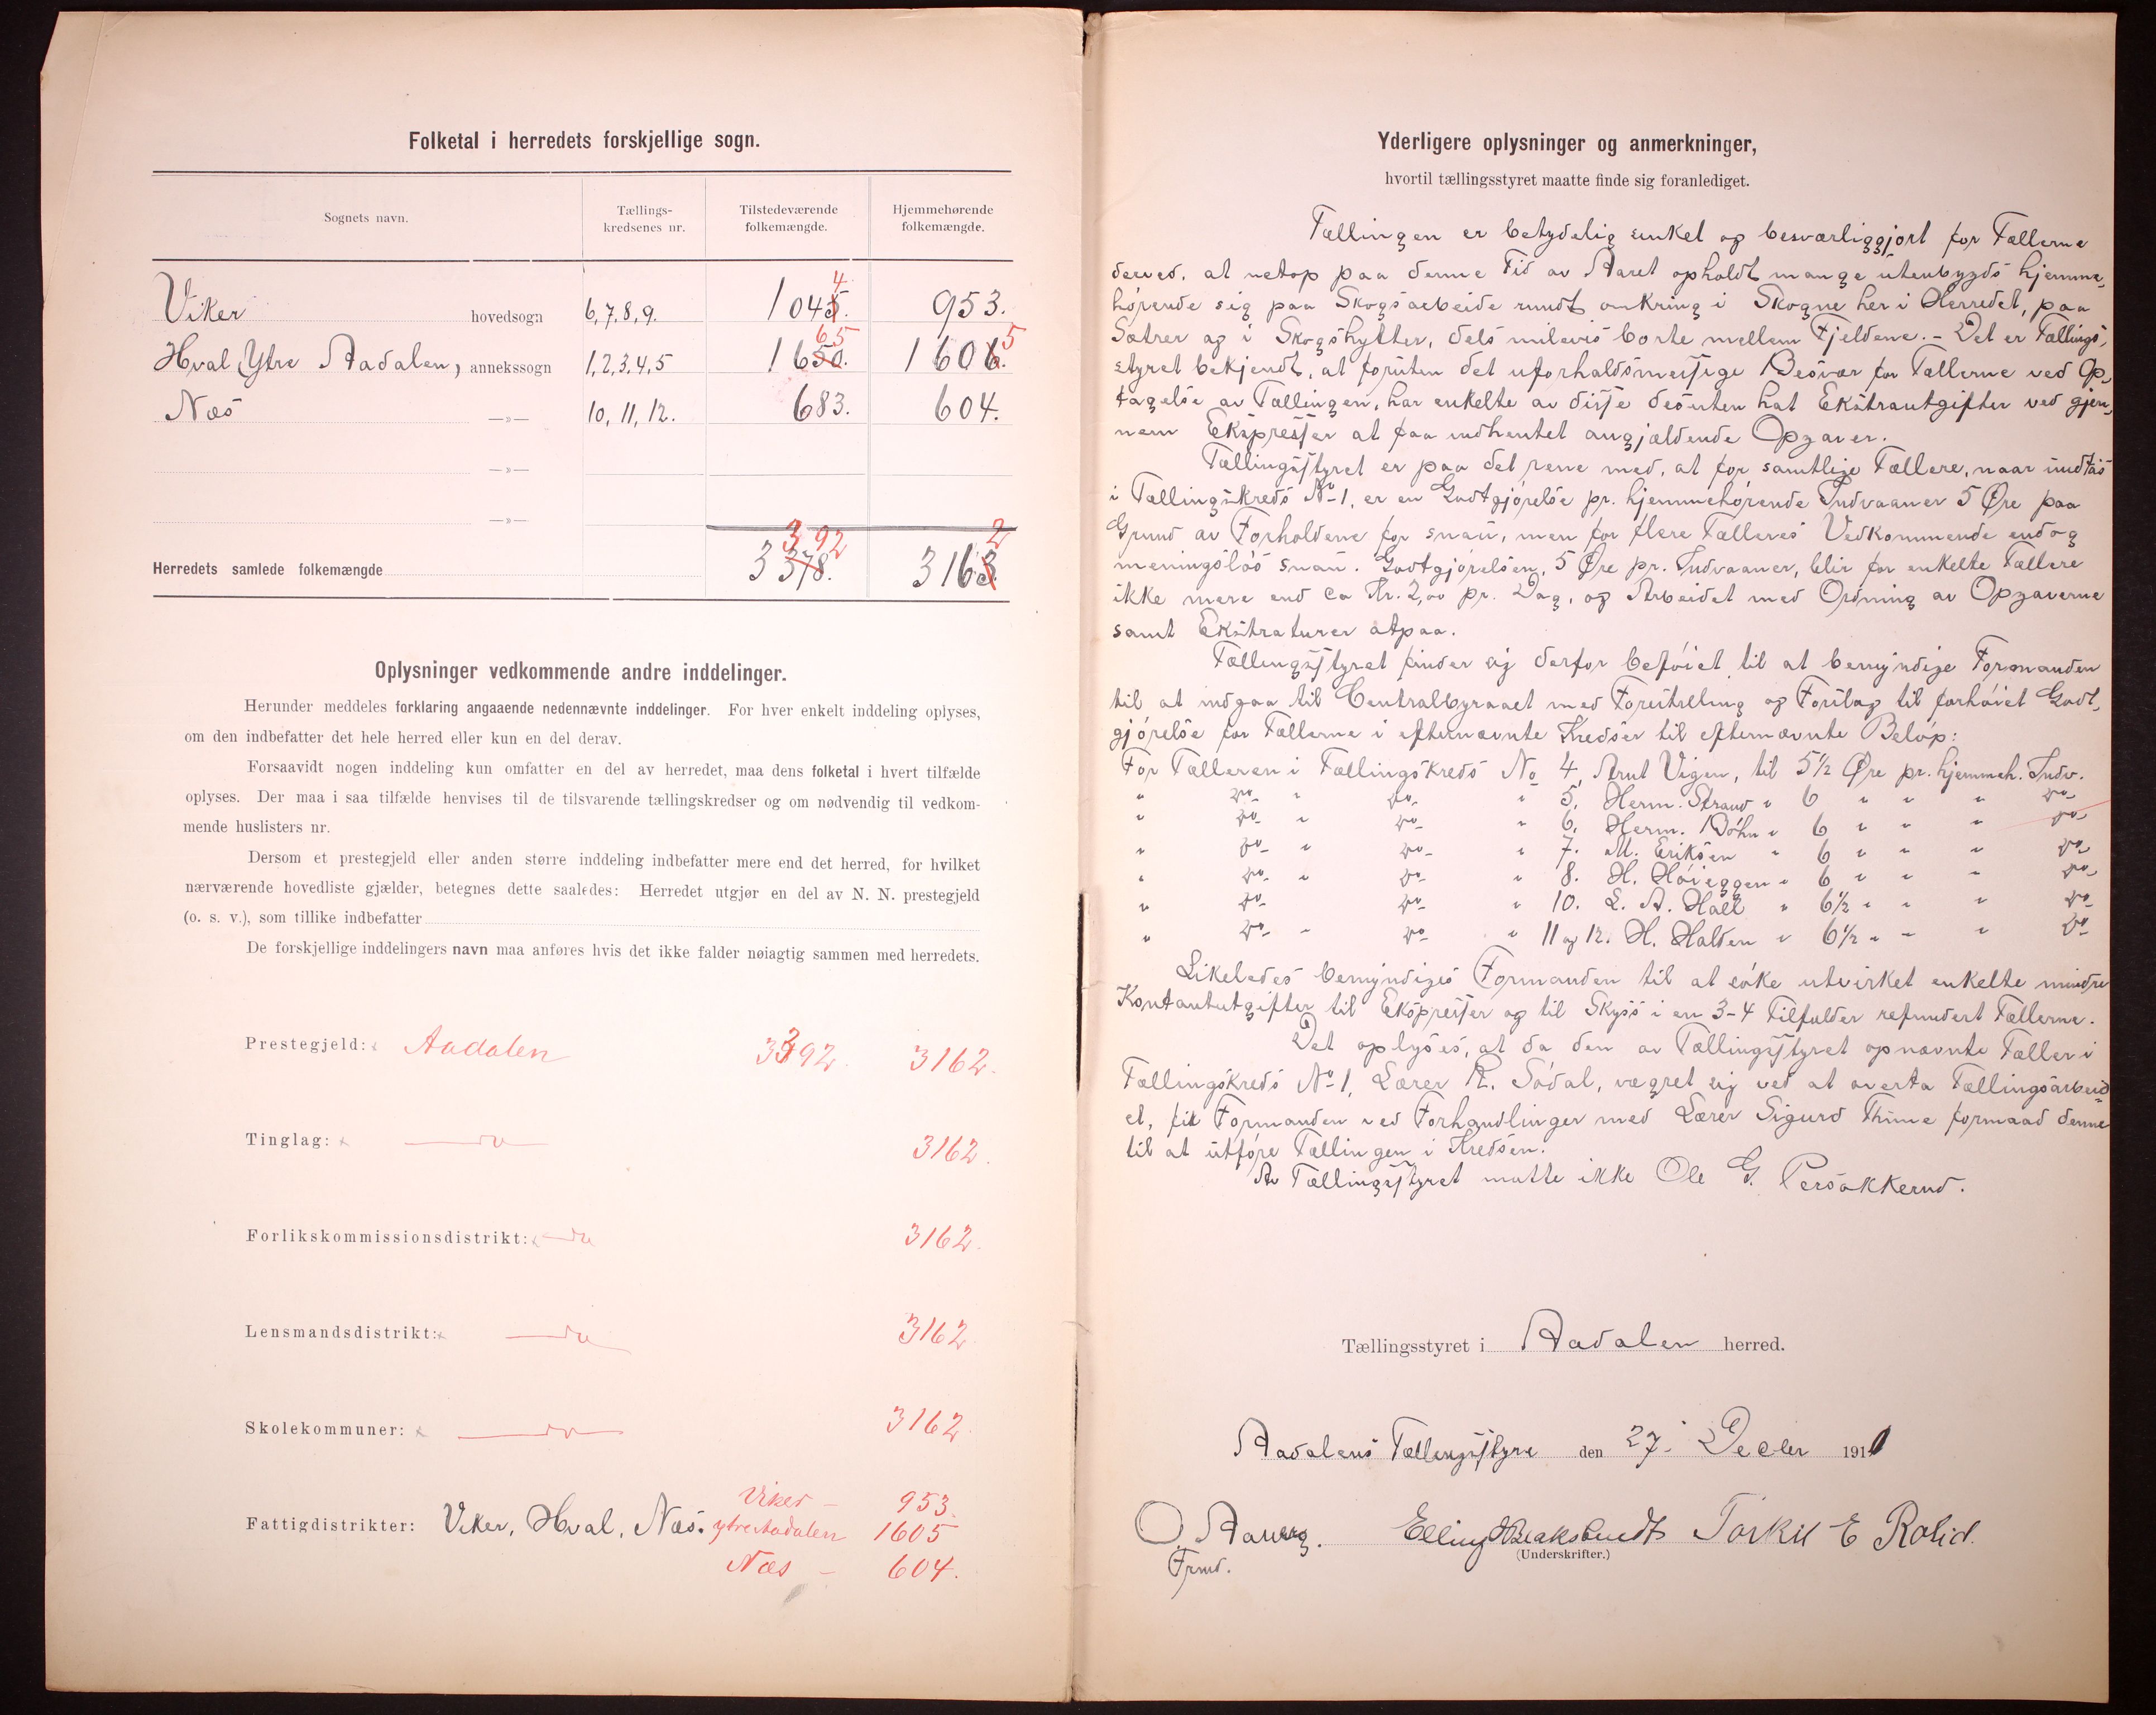 Folketal i herredets forskjellige sogn.
Sognets navn. Tællings-kredsenes nr. Tilstedeværende folkemængde. Hjemmehørende folkemængde.
Viker hovedsogn 6, 7, 8, 9. 1045. 4 953.
Hval (Ytre Aadalen) annekssogn 1, 2, 3, 4, 5 1650. 65 1606. 5
Næs —»— 10, 11, 12. 683. 604.
—»—
—»—
Herredets samlede folkemængde 3378. 392 3163. 2
Oplysninger vedkommende andre inddelinger.
Herunder meddeles forklaring angaaende nedennævnte inddelinger. For hver enkelt inddeling oplyses,
om den indbefatter det hele herred eller kun en del derav.
Forsaavidt nogen inddeling kun omfatter en del av herredet, maa dens folketal i hvert tilfælde
oplyses. Der maa i saa tilfælde henvises til de tilsvarende tællingskredser og om nødvendig til vedkom-
mende huslisters nr.
Dersom et prestegjeld eller anden større inddeling indbefatter mere end det herred, for hvilket
nærværende hovedliste gjælder, betegnes dette saaledes: Herredet utgjør en del av N. N. prestegjeld
(o. s. v.), som tillike indbefatter
De forskjellige inddelingers navn maa anføres hvis det ikke falder nøiagtig sammen med herredets.
Prestegjeld: Aadalen 3392. 3162.
Tinglag: do 3162.
Forlikskommissionsdistrikt: do 3162.
Lensmandsdistrikt: do 3162
Skolekommuner: do 3162
Fattigdistrikter: Viker, Hval, Næs. Viker – 953.
ytre Aadalen 1605
Næs – 604.
Yderligere oplysninger og anmerkninger,
hvortil tællingsstyret maatte finde sig foranlediget.
Tællingen er betydelig sinket og besværliggjort for Tællerne
derved, at netop paa denne Tid av Aaret opholdt mange utenbygds hjemme-
hørende sig paa Skogsarbeide rundt omkring i Skogne her i Herredet, paa
Sætrer og i Skogshytter, dels milevis borte mellem Fjeldene. – Det er Tællings-
styret bekjendt, at foruten det uforholdsmessige Besvær for Tællerne ved Op-
tagelse av Tællingen, har enkelte av disse desuten hat Ekstrautgifter ved gjen-
nem Ekspresser at faa indhentet angjældende Opgaver.
Tællingsstyret er paa det rene med, at for samtlige Tællere, naar undtas
i Tællingskreds No 1, er en Godtgjørelse pr. hjemmehørende Indvaaner 5 Øre paa
Grund av Forholdene for snau, men for flere Tælleres Vedkommende endog
meningsløs snau. Godtgjørelsen, 5 Øre pr. Indvaaner, blir for enkelte Tællere
ikke mere end ca Kr. 2,00 pr. Dag, og Arbeidet med Ordning av Opgaverne
samt Ekstraturer atpaa.
Tællingsstyret finder sig derfor beføiet til at bemyndige Formanden
til at indgaa til Centralbyraaet med Forestilling og Forslag til forhøiet Godt-
gjørelse for Tællerne i efternævnte Kredser til efternævnte Beløp:
For Tælleren i Tællingskreds No 4, Arnt Vigen, til 5½ Øre pr. hjemmeh. Indv.
" do " do " 5, Herm. Strand " 6 " " " do
" do " do " 6, Herm. Bøhn " 6 " " " do
" do " do " 7. M. Eriksen " 6 " " " do
" do " do " 8. H. Høieggen " 6 " " " do
" do do " 10. L. A. Hall " 6½ " " " do
" do " do " 11 og 12. H. Halden " 6½ " " " do
Likeledes bemyndiges Formanden til at søke utvirket enkelte mindre
Kontantutgifter til Ekspresser og til Skyss i en 3-4 Tilfælder refundert Tællerne.
Det oplyses, at da den av Tællingsstyret opnævnte Tæller i
Tællingskreds No 1, Lærer R. Sødal, vægret sig ved at overta Tællingsarbeid-
et, fik Formanden ved Forhandlinger med Lærer Sigurd Thime formaad denne
til at utføre Tællingen i Kredsen.
Av Tællingsstyret møtte ikke Ole G. Persøkkerud.
Tællingsstyret i Aadalen herred.
Aadalens Tællingsstyre den 27. Decbr 1910
O. Elling Torkil E Rolid.
Frmd. (Underskrifter.)